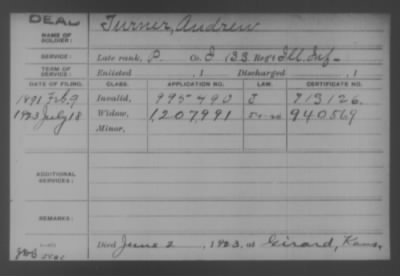 DEAD
NAME OF SOLDIER: Turner, Andrew
SERVICE: Late rank, P. Co. I 133 Reg't Ill. Inf.
TERM OF SERVICE: Enlisted , 1 Discharged , 1
DATE OF FILING. CLASS. APPLICATION NO. LAW. CERTIFICATE NO.
1891 Feb. 9 Invalid, 995490 J 713126.
1923 July 18 Widow, 1,207,991 940569
Minor,
ADDITIONAL SERVICES:
REMARKS:
Died June 2, 1923, at Girard, Kans.